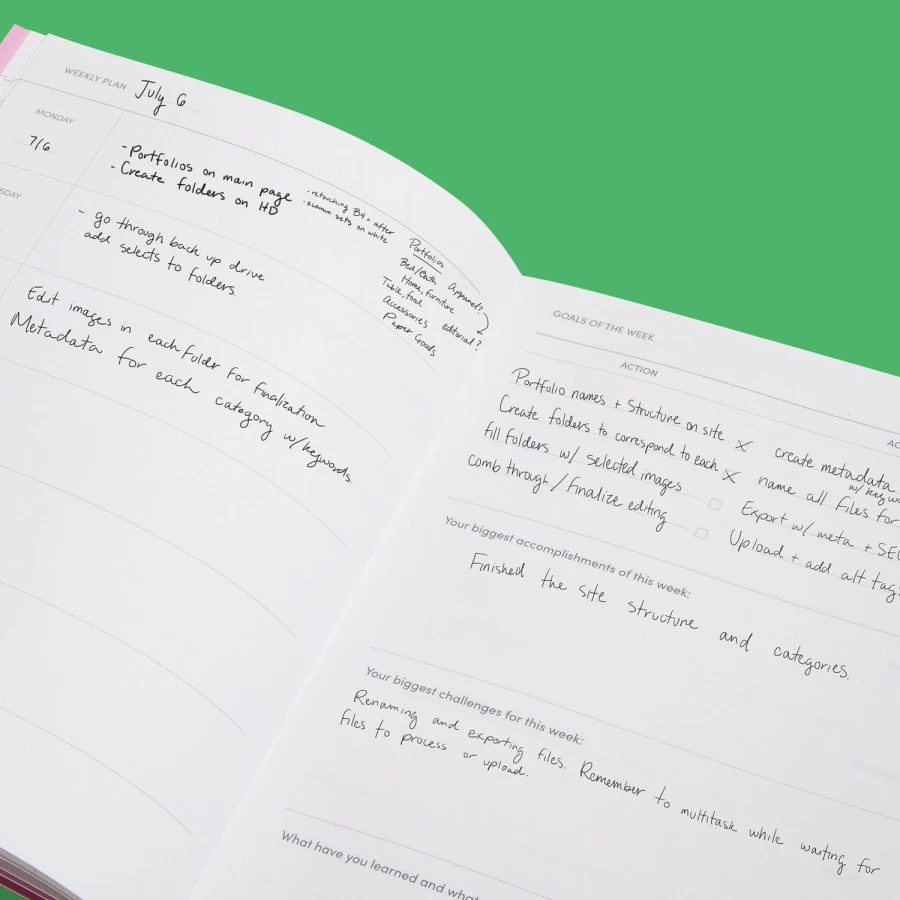 WEEKLY PLAN July 6
MONDAY
7/6
- Portfolios on main page
- Create folders on HD
- retouching B4 + after
- ecomm sets on white
Portfolios
Bed/Bath Apparel?
Home, furniture
Table, food
Accessories editorial?
Paper Goods
SDAY
- go through back up drive
add selects to folders.
Edit images in each Folder for finalization
Metadata for each category w/keywords.
GOALS OF THE WEEK
ACTION
AC
Portfolio names + Structure on site X
Create folders to correspond to each X
fill folders w/ selected images
comb through / Finalize editing
create metadata
w/ keyw
name all files for
Export w/ meta + SE
Upload + add alt tag
Your biggest accomplishments of this week:
Finished the site structure and categories.
Your biggest challenges for this week:
Renaming and exporting files. Remember to multitask while waiting for
files to process or upload.
What have you learned and what